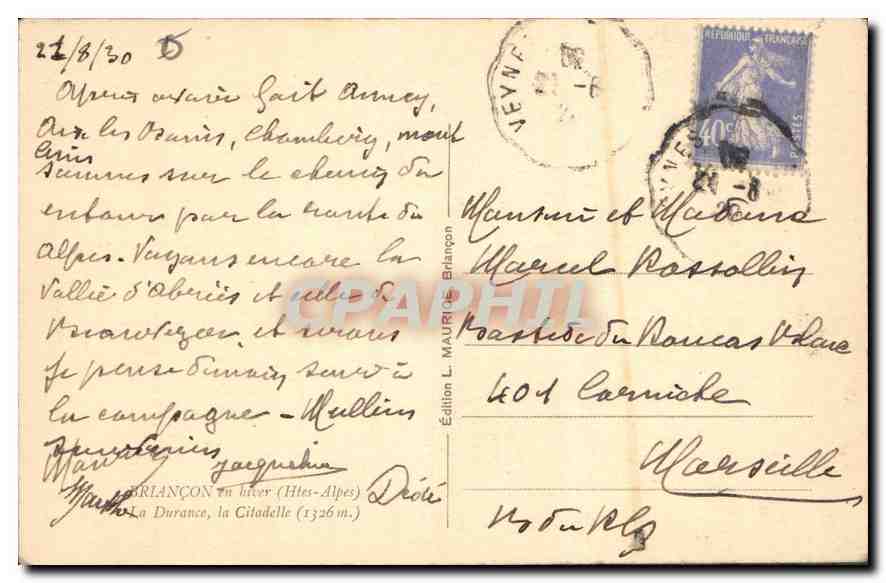 21/8/30
Après avoir fait Annecy,
Aix les Bains, Chambéry, mont
Cenis
sommes sur le chemin du
retour par la route des
Alpes. Voyons encore la
Vallée d'Abriès et celle de
et serons
je pense demain soir à
la campagne - Meilleurs
souvenirs
Jacqueline
Marthe
Dédé
BRIANÇON en hiver (Htes-Alpes)
La Durance, la Citadelle (1326 m.)
Édition L. MAURICE Briançon
VEYNES
21 -8
REPUBLIQUE FRANÇAISE
40c
POSTES
VEYNES
21 -8
30
Monsieur et Madame
Marcel Rossollin
Bastide du Roucas Blanc
401 Corniche
Marseille
Bs du Rh
CPAPHIL